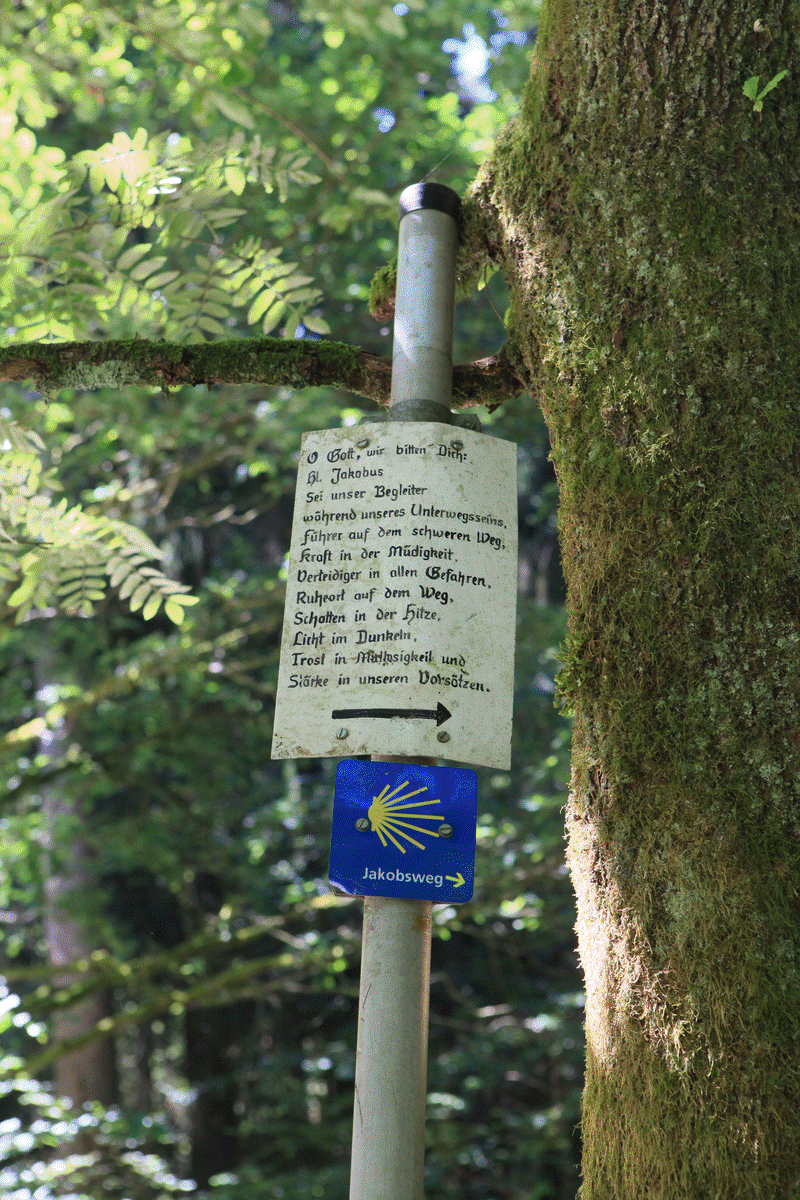 O Gott, wir bitten Dich:
Hl. Jakobus
Sei unser Begleiter
während unseres Unterwegsseins,
Führer auf dem schweren Weg,
Kraft in der Müdigkeit,
Verteidiger in allen Gefahren,
Ruheort auf dem Weg,
Schatten in der Hitze,
Licht im Dunkeln,
Trost in Mutlosigkeit und
Stärke in unseren Vorsätzen.
Jakobsweg